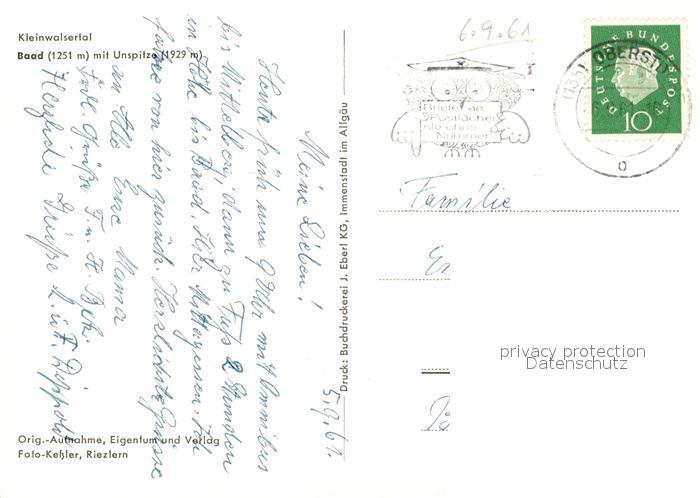 Kleinwalsertal
Baad (1251 m) mit Unspitze (1929 m)
5.9.61.
Meine Lieben!
Heute früh um 9 Uhr mit Omnibus
bis Mittelberg, dann zu Fuß 2 Stunden
in Höhe bis Baad. Hier Mittagessen. Ich
fahre von hier zurück. Herzlichste Grüsse
an Alle Eure Mama
Frdl. Grüße F. u. H.
Herzliche Grüße L. u. F. Dippold
Orig.-Aufnahme, Eigentum und Verlag
Foto-Keßler, Riezlern
Druck: Buchdruckerei J. Eberl KG, Immenstadt im Allgäu
6.9.61
Briefe an
Postfächer
nie ohne
Nummer
(13b) OBERST
DEUTSCHE BUNDESPOST
10
Familie
privacy protection
Datenschutz